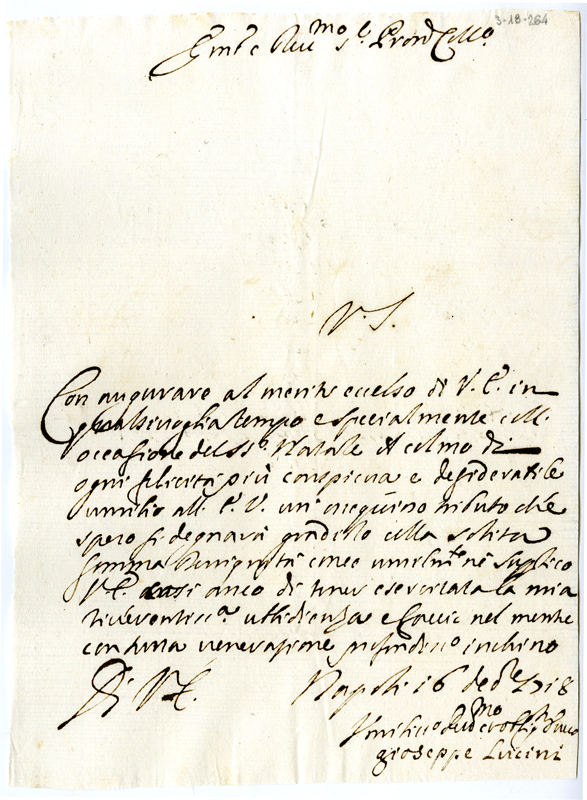 3-18-264
Em.e Rev.mo S.e Pron Coll.o
V. S.
Con augurare al merito eccelso di V. E. in
qualsivoglia tempo e specialmente coll'
occasione del SS.o Natale il colmo di
ogni felicità più conspicua e desiderabile
umilio all' E. V. un' ossequioso tributo che
spero si degnarà gradirlo colla solita
somma benignità come umilm.te ne supplico
V. E. anco di tener esercitata la mia
riverentiss.a ubbidienza e faccio nel mentre
con tutta venerazione profondiss.o inchino
Di V. E. Napoli 16 de Xbre 1718
Umiliss.o Div.mo
Gioseppe Lucini